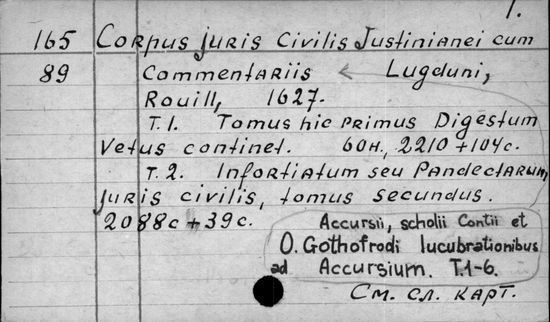 1.
165 Corpus juris civilis Justinianei cum
89 Commentariis Lugduni,
Rouill, 1627.
T.1. Tomus hic primus Digestum
Vetus continet. 60н., 2210 + 104с.
T.2. Infortiatum seu Pandectarum,
juris civilis, tomus secundus.
2088с + 39с.
Accursii, scholii Contii et
O. Gothofrodi lucubrationibus
ad Accursium. T.1-6.
См. сл. карт.